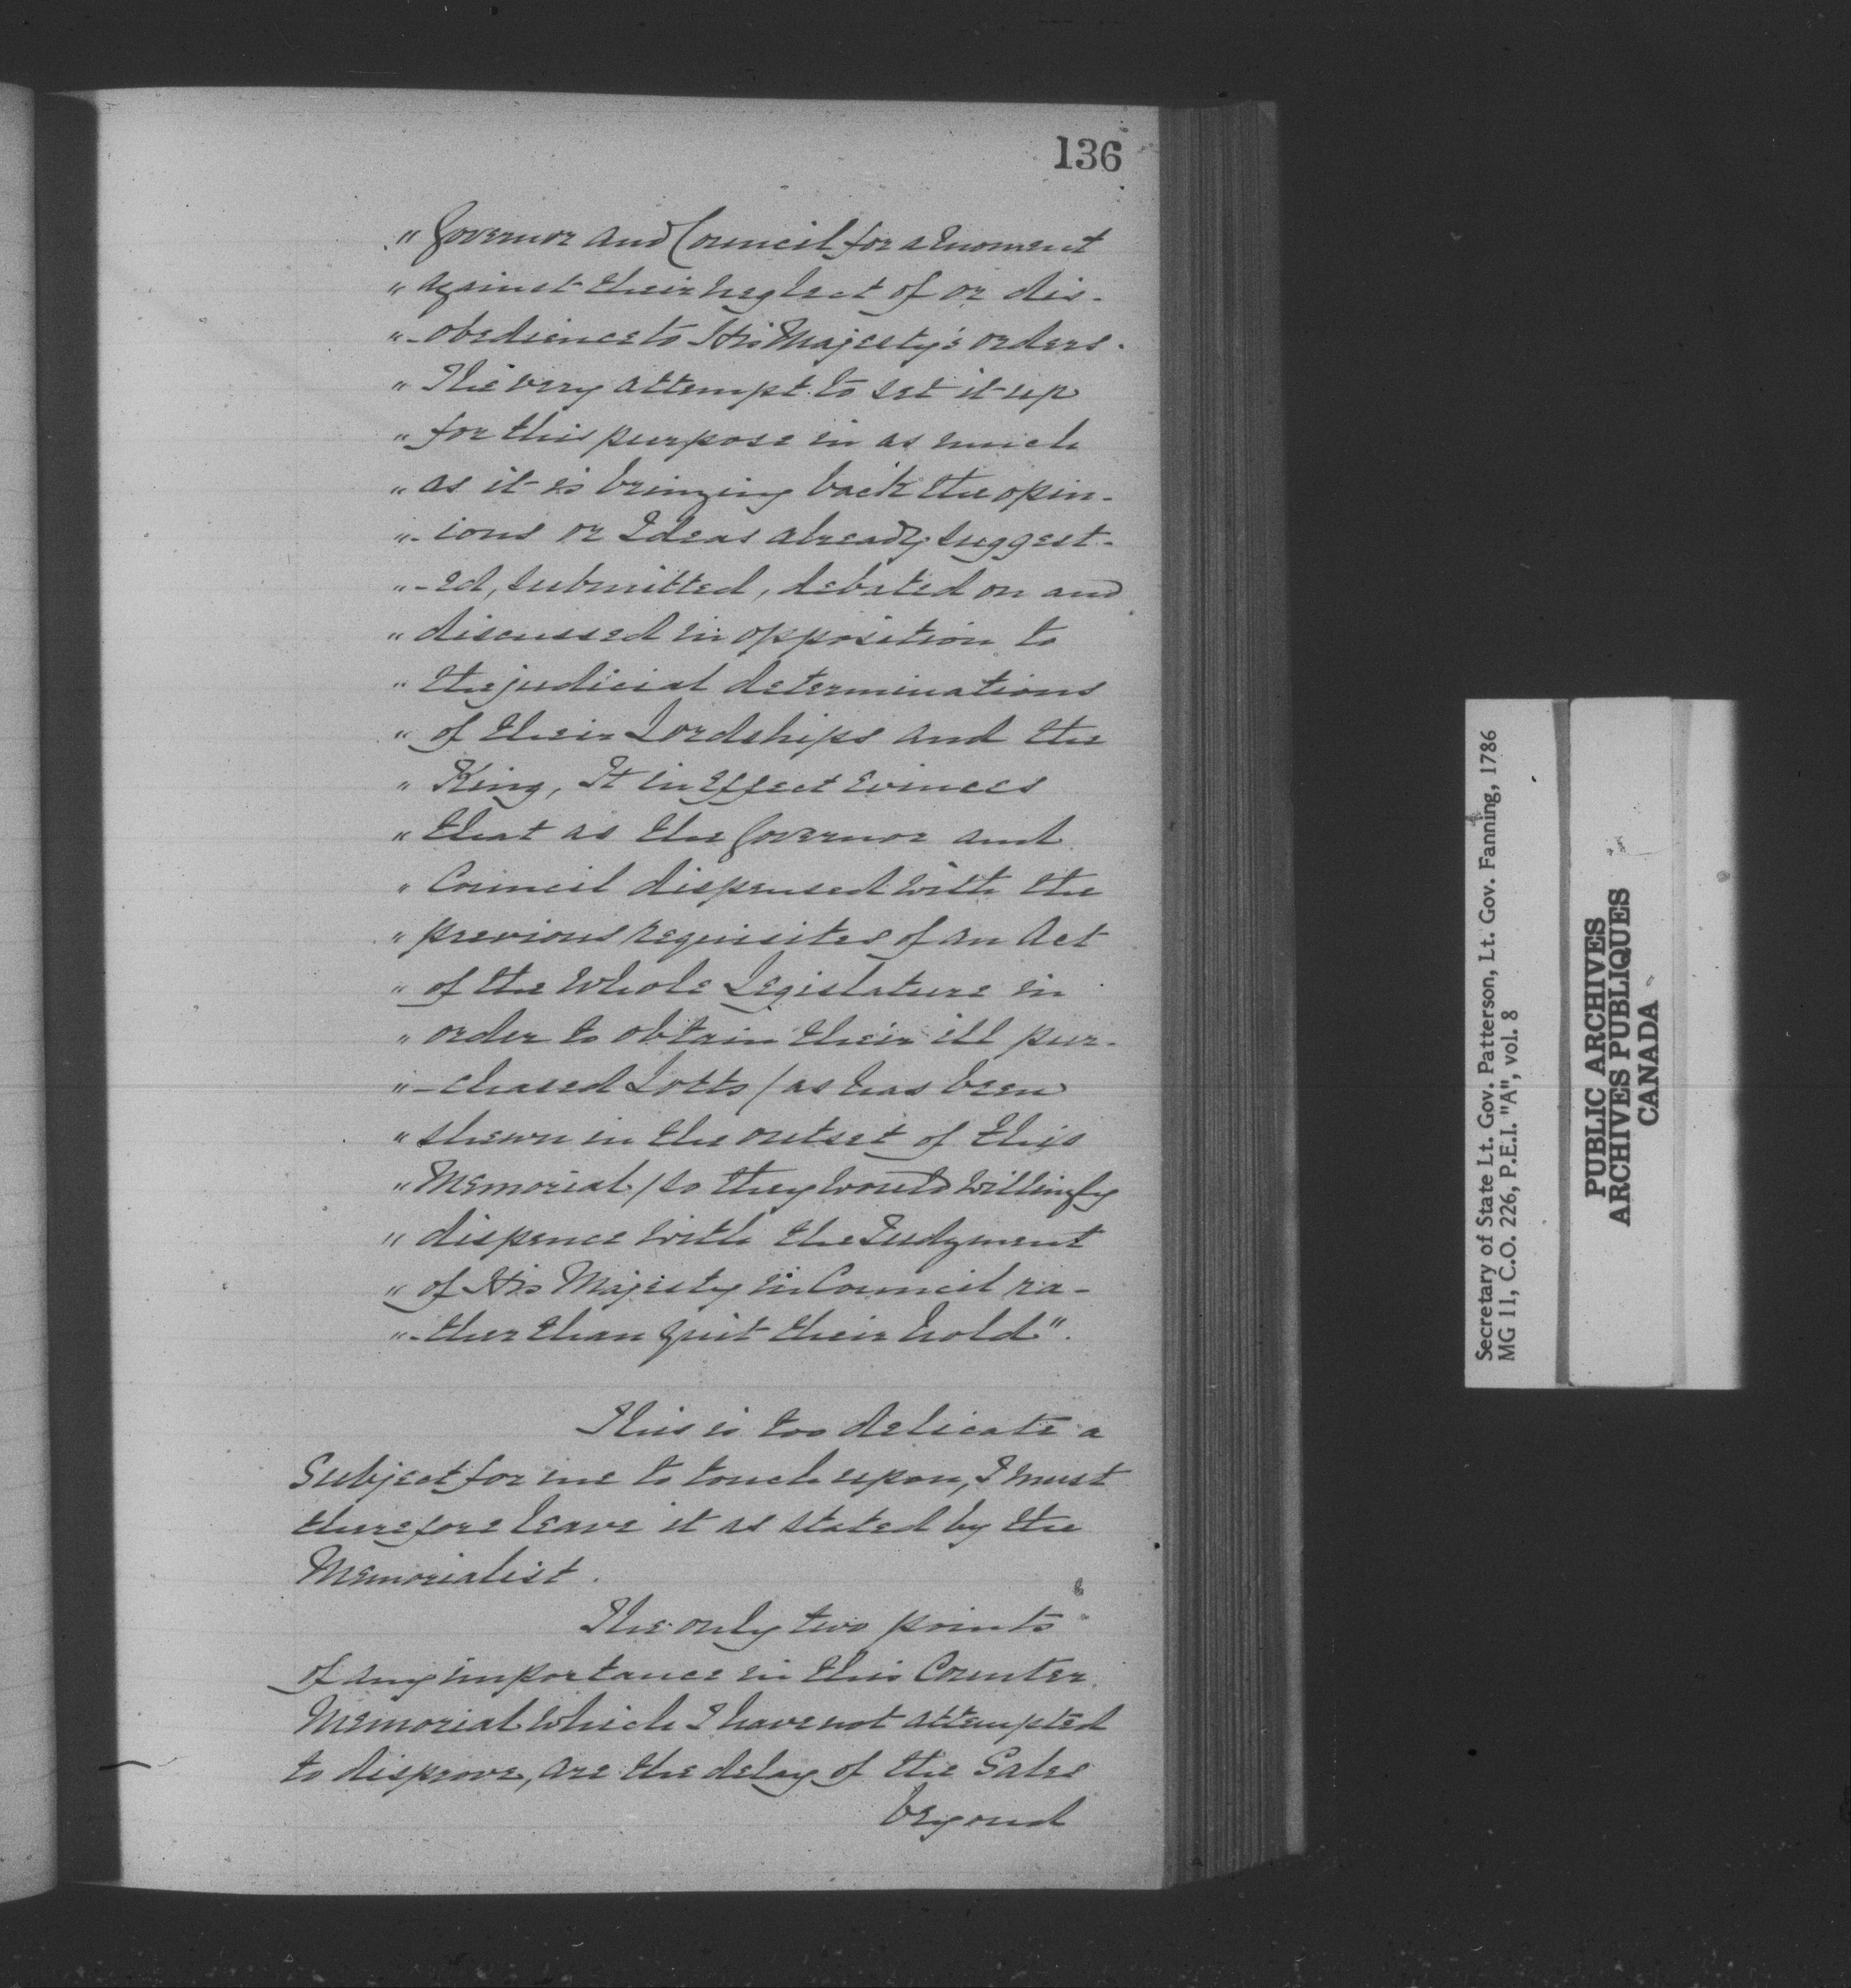 136
" Governor and Council for a moment
" against their neglect of or dis-
"-obedience to His Majesty's orders.
" The very attempt to set it up
" for this purpose in as much
" as it is bringing back the opin-
"-ions or Ideas already suggest-
"-ed, submitted, debated on and
" discussed in opposition to
" the judicial determinations
" of their Lordships and the
" King, It in effect evinces
" that as the Governor and
" Council dispensed with the
" previous requisites of an Act
" of the whole Legislature in
" order to obtain their ill pur-
"-chased Lotts / as has been
" shewn in the outset of this
" Memorial / so they would willingly
" dispence with the Judgment
" of His Majesty in Council ra-
"-ther than quit their hold".
This is too delicate a
Subject for me to touch upon, I must
therefore leave it as stated by the
Memorialist.
The only two points
of any importance in this Counter
Memorial which I have not attempted
to disprove, are the delay of the Sales
beyond
Secretary of State Lt. Gov. Patterson, Lt. Gov. Fanning, 1786
MG 11, C.O. 226, P.E.I. "A", vol. 8
PUBLIC ARCHIVES
ARCHIVES PUBLIQUES
CANADA